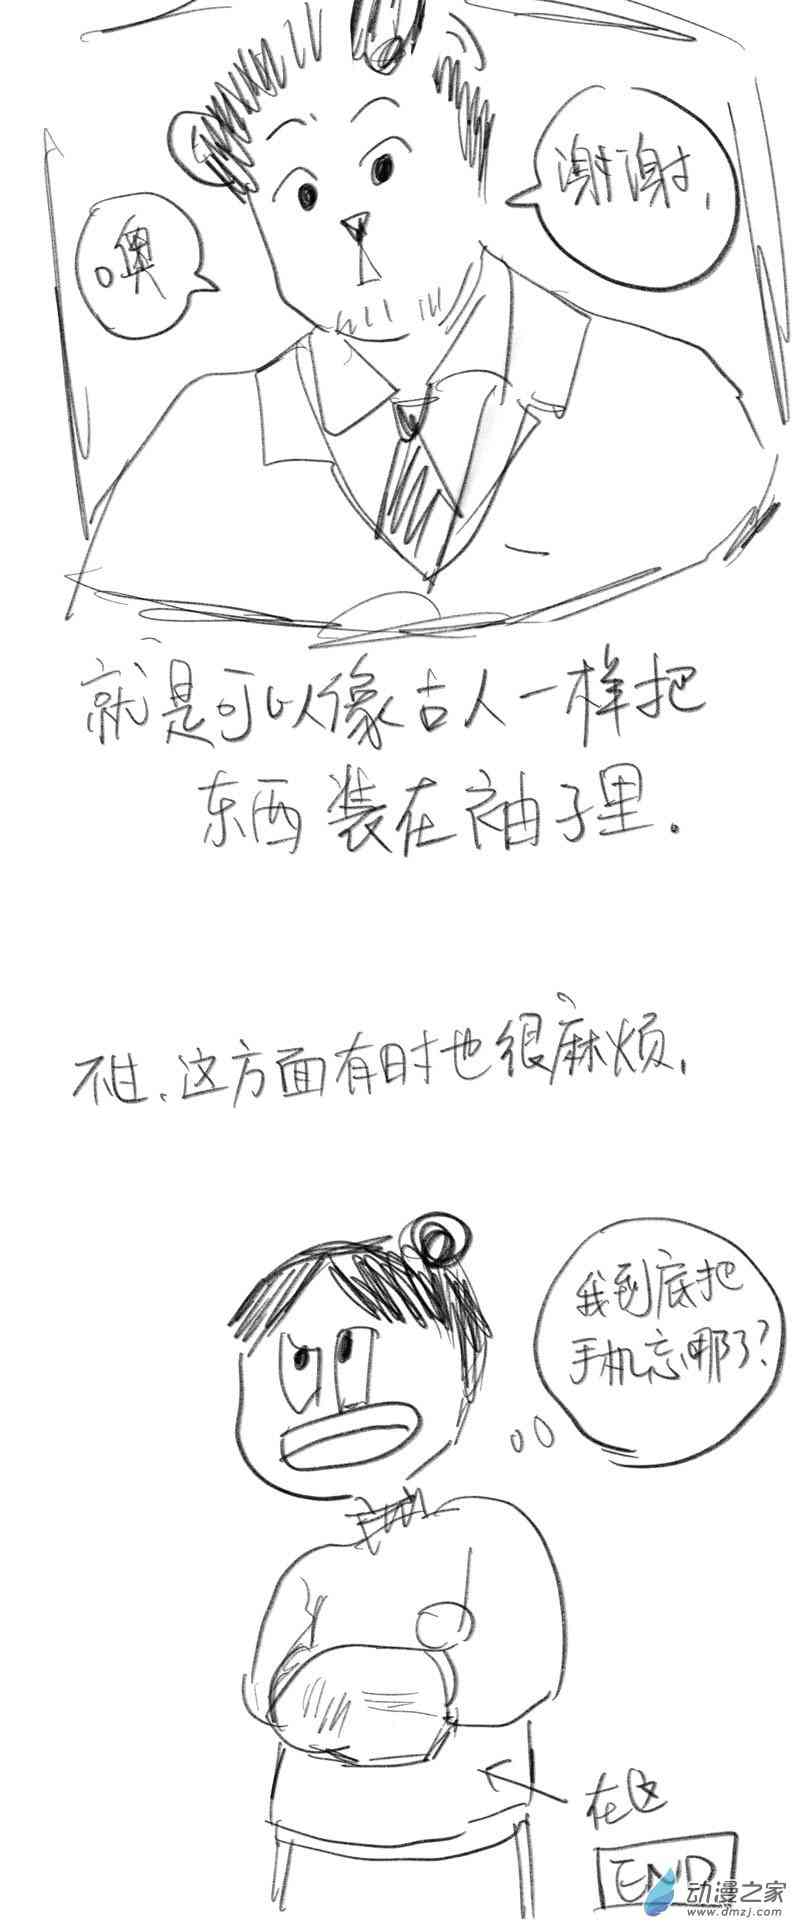 谢谢,
噢
就是可以像古人一样把
东西装在袖子里.
不过,这方面有时也很麻烦,
我到底把
手机忘哪了?
在这
END
动漫之家
www.dmzj.com